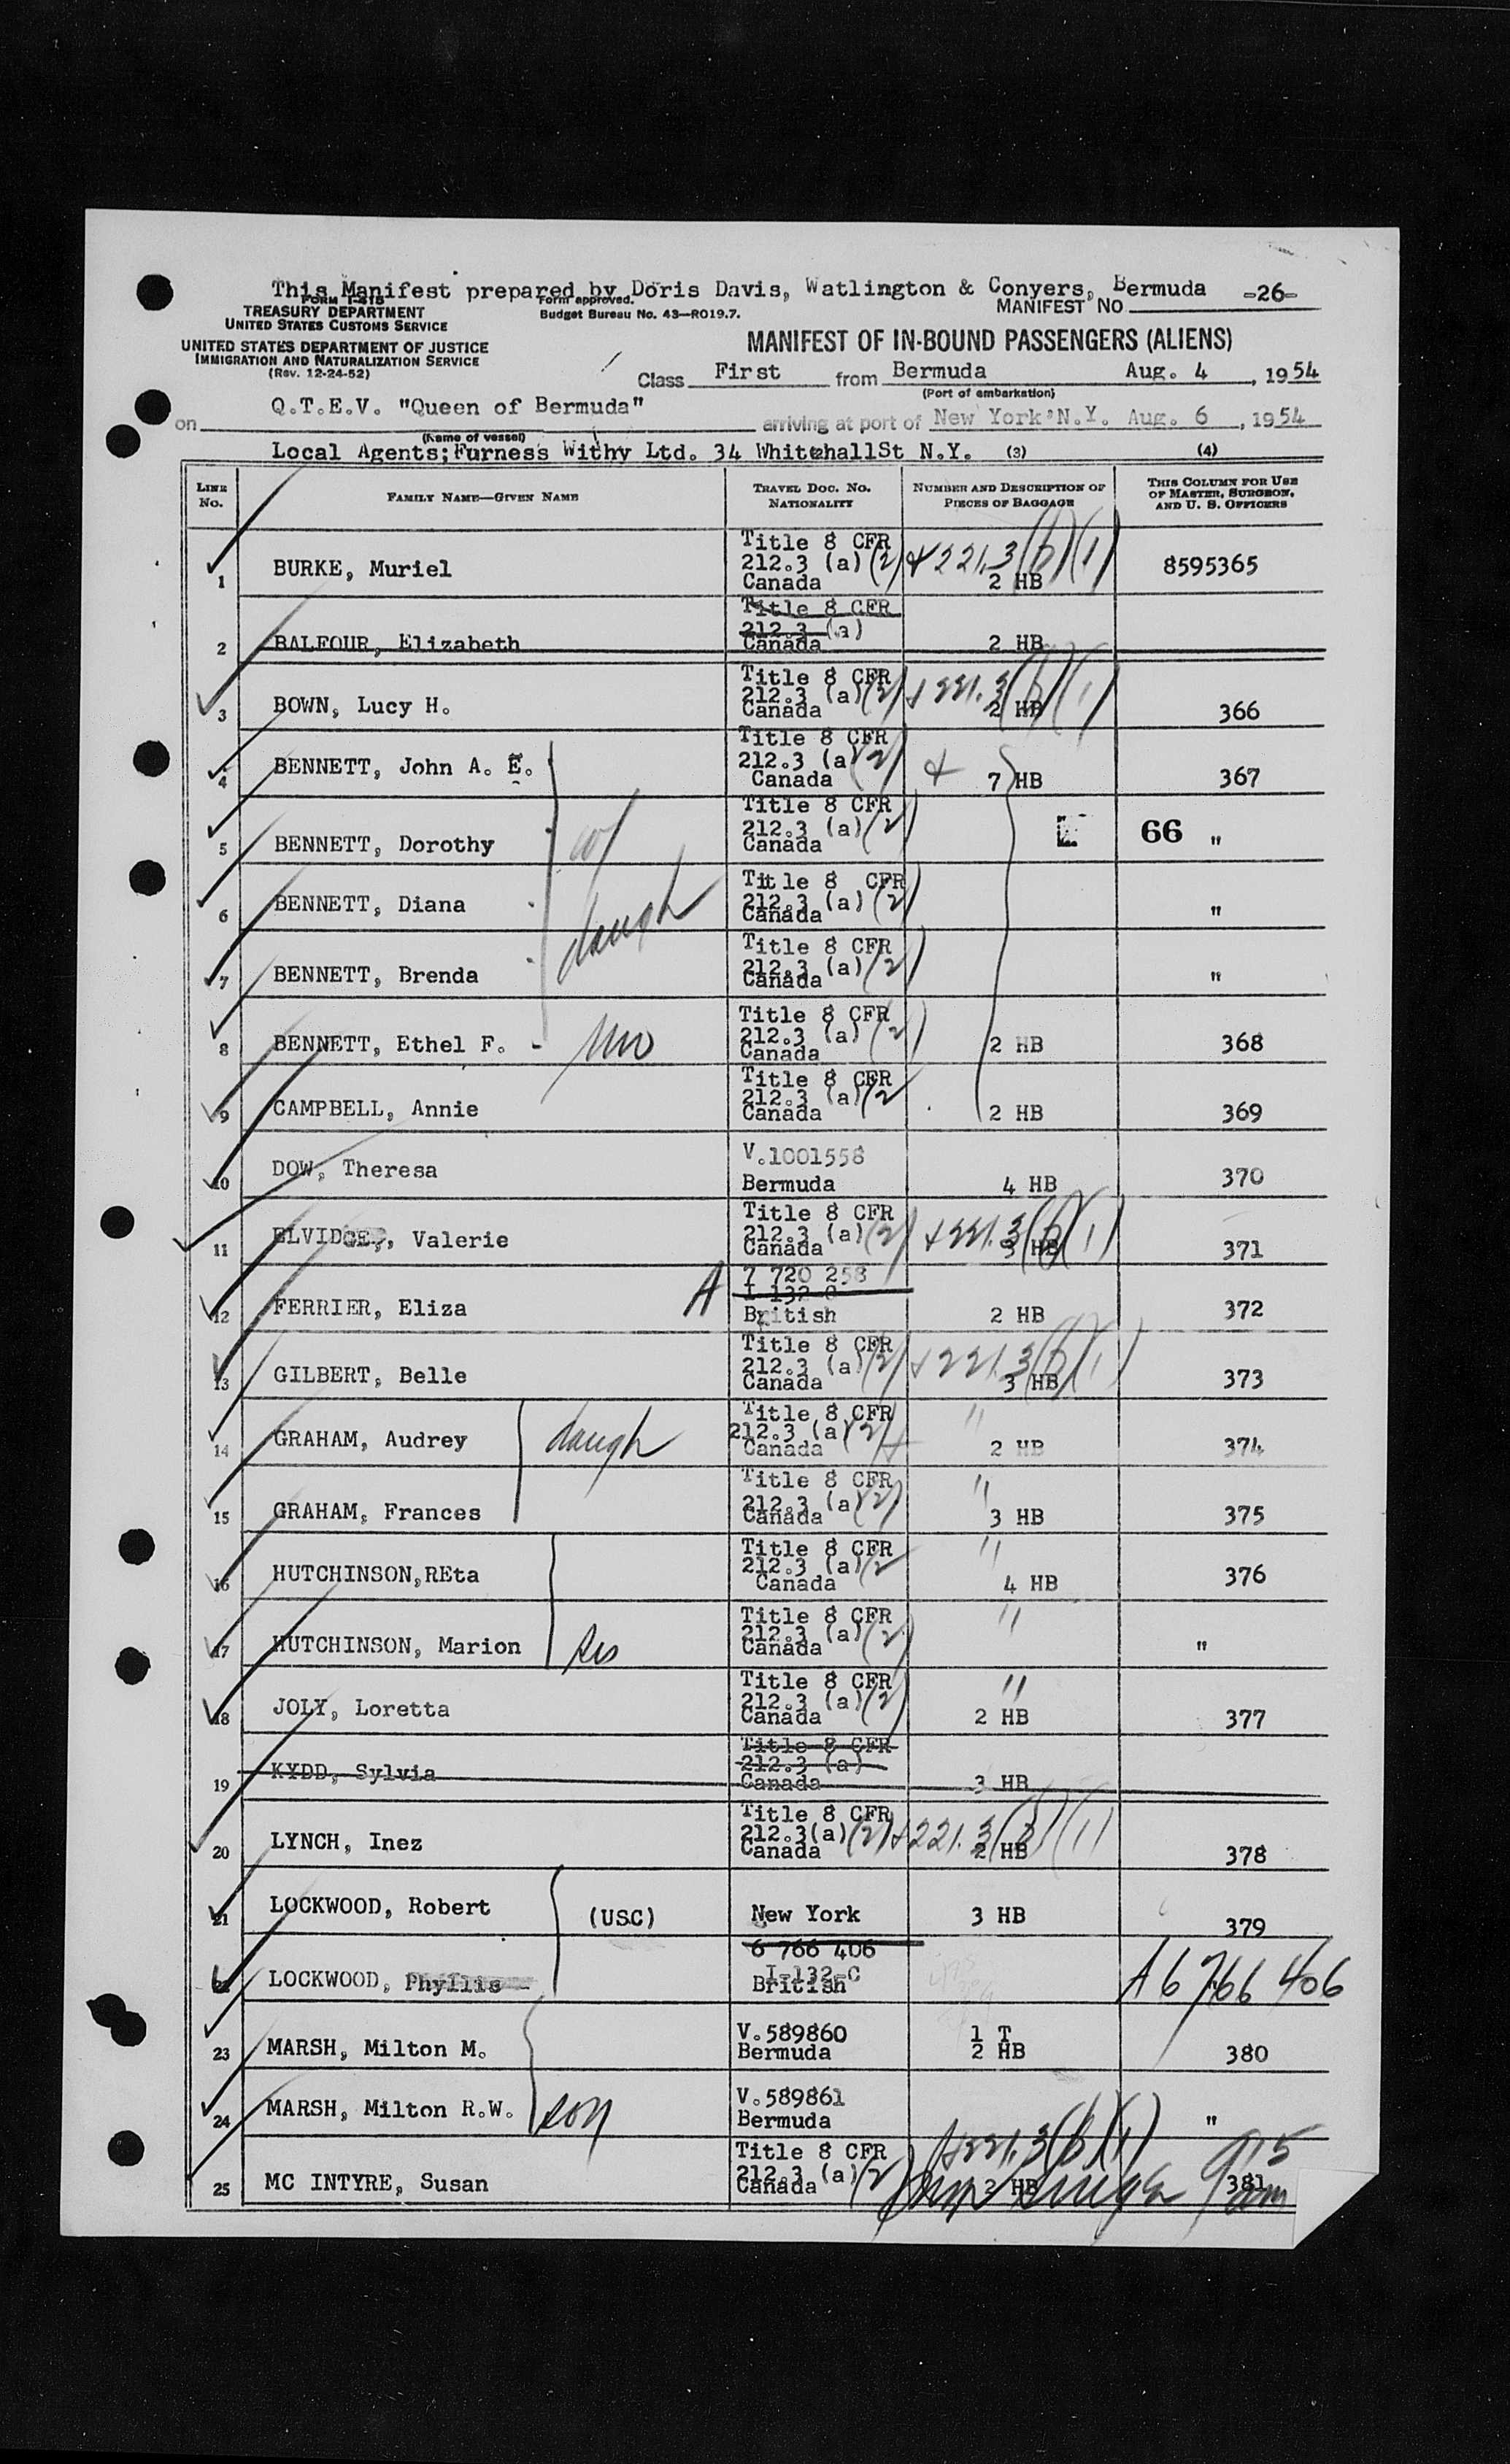 This Manifest prepared by Doris Davis, Watlington & Conyers, Bermuda -26-
FORM I-415 Form approved. MANIFEST NO
TREASURY DEPARTMENT Budget Bureau No. 43—RO19.7.
UNITED STATES CUSTOMS SERVICE
UNITED STATES DEPARTMENT OF JUSTICE MANIFEST OF IN-BOUND PASSENGERS (ALIENS)
IMMIGRATION AND NATURALIZATION SERVICE
(Rev. 12-24-52)
Class First from Bermuda Aug. 4, 1954
(Port of embarkation)
on Q.T.E.V. "Queen of Bermuda" arriving at port of New York N.Y. Aug. 6, 1954
(Name of vessel)
Local Agents; Furness Withy Ltd. 34 Whitehall St N.Y. (3) (4)
LINE No. FAMILY NAME—GIVEN NAME TRAVEL DOC. NO. NATIONALITY NUMBER AND DESCRIPTION OF PIECES OF BAGGAGE THIS COLUMN FOR USE OF MASTER, SURGEON, AND U. S. OFFICERS
1 BURKE, Muriel Title 8 CFR 212.3 (a) (2) + 221.3(b)(1) Canada 2 HB 8595365
2 BALFOUR, Elizabeth Title 8 CFR 212.3 (a) Canada 2 HB
3 BOWN, Lucy H. Title 8 CFR 212.3 (a) (2) + 221.3(b)(1) Canada 2 HB 366
4 BENNETT, John A. E. Title 8 CFR 212.3 (a) (2) + Canada 7 HB 367
5 BENNETT, Dorothy w/ Title 8 CFR 212.3 (a) (2) Canada 66 "
6 BENNETT, Diana daugh Title 8 CFR 212.3 (a) (2) Canada "
7 BENNETT, Brenda Title 8 CFR 212.3 (a) (2) Canada "
8 BENNETT, Ethel F. - mo Title 8 CFR 212.3 (a) (2) Canada 2 HB 368
9 CAMPBELL, Annie Title 8 CFR 212.3 (a) (2 Canada 2 HB 369
10 DOW, Theresa V.1001558 Bermuda 4 HB 370
11 ELVIDGE, Valerie Title 8 CFR 212.3 (a) (2) + 221.3(b)(1) Canada 3 HB 371
12 FERRIER, Eliza A 7 720 258 I 132 C British 2 HB 372
13 GILBERT, Belle Title 8 CFR 212.3 (a) (2) + 221.3(b)(1) Canada 3 HB 373
14 GRAHAM, Audrey daugh Title 8 CFR 212.3 (a) (2) + " Canada 2 HB 374
15 GRAHAM, Frances Title 8 CFR 212.3 (a) (2) " Canada 3 HB 375
16 HUTCHINSON,REta Title 8 CFR 212.3 (a) (2 " Canada 4 HB 376
17 HUTCHINSON, Marion sis Title 8 CFR 212.3 (a) (2) " Canada "
18 JOLY, Loretta Title 8 CFR 212.3 (a) (2) " Canada 2 HB 377
19 KYDD, Sylvia Title 8 CFR 212.3 (a) Canada 3 HB
20 LYNCH, Inez Title 8 CFR 212.3(a) (2) + 221.3(b)(1) Canada 2 HB 378
21 LOCKWOOD, Robert (USC) New York 3 HB 379
22 LOCKWOOD, Phyllis 6 766 406 I-132-C British A6 766 406
23 MARSH, Milton M. V.589860 Bermuda 1 T 2 HB 380
24 MARSH, Milton R.W. son V.589861 Bermuda "
25 MC INTYRE, Susan Title 8 CFR 212.3 (a) (2) + 221.3(b)(1) Canada 2 HB 381 915 am